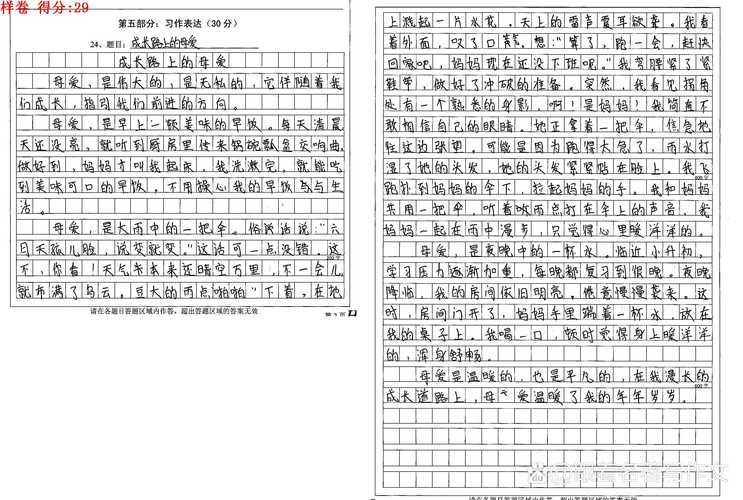 样卷 得分:29
第五部分：习作表达（30分）
24、题目：成长路上的母爱
成长路上的母爱
母爱，是伟大的，是无私的，它伴随着我
们成长，指引我们前进的方向。
母爱，是早上一顿美味的早饭。每天清晨
天还没亮，就听到厨房里传来锅碗瓢盆交响曲，
做好到，妈妈才叫我起床，我洗漱完，就能吃
到美味可口的早饭。不用操心我的早饭与生
活。
母爱，是大雨中的一把伞。俗话说：“六
日天孩儿脸，说变就变。”这话可一点没错，这
不，你看！天气本来还晴空万里，不一会儿
就布满了乌云。豆大的雨点“啪啪”下着，在地
200字
请在各题目答题区域内作答，超出答题区域的答案无效
上溅起一片水花，天上的雷声震耳欲聋。我看
着外面，叹了口气，想：“算了，跑一会，赶快
回家吧，妈妈现在还没下班呢。”我弯腰紧了紧
鞋带，做好了冲破的准备。突然，我看见拐角
处有一个熟悉的身影，啊！是妈妈！我简直不
敢相信自己的眼睛。她正拿着一把伞，焦急地
往这边张望。可能是因为雨得太急了，雨水打
湿了她的头发，她的头发紧紧贴在脸上。我飞
跑扑到妈妈的伞下，拉起妈妈的手。我和妈妈
共用一把伞，听着雨点打在伞上的声音，我
妈妈一起在雨中漫步，只觉得心里暖洋洋的。
母爱，是夜晚中的一杯水。临近小升初，
学习压力逐渐加重，每晚都复习到很晚。夜晚
降临，我的房间依旧明亮。倦意慢慢袭来。这
时，房间门开了，妈妈手里端着一杯水，放在
我的桌子上。我喝一口，顿时觉得身上暖洋洋
的，浑身舒畅。
母爱是温暖的，也是平凡的，在我漫长的
成长道路上，母爱温暖了我的年年岁岁。